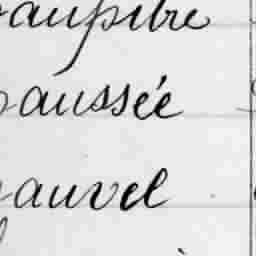 aupitre
aussée
auvel